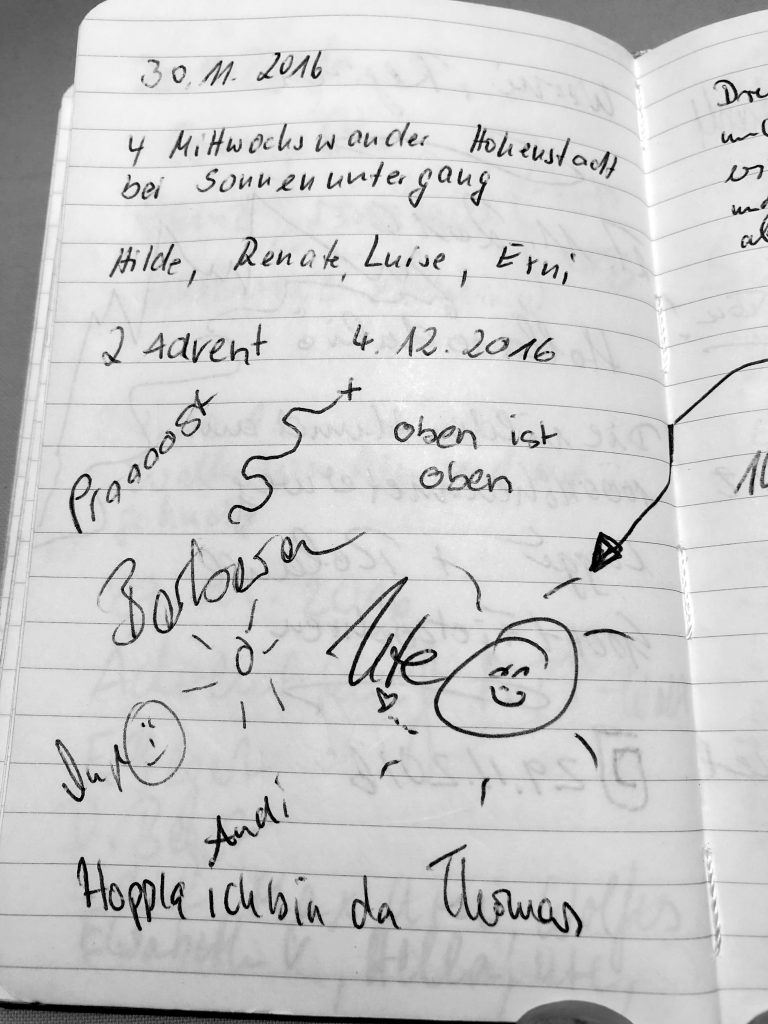 30.11.2016
4 Mittwochswander Hohenstadt
bei Sonnenuntergang
Hilde, Renate, Luise, Erni
2 Advent 4.12.2016
Praaoost
oben ist
oben
Barbara
Ute
Andi
Hoppla ich bin da Thomas